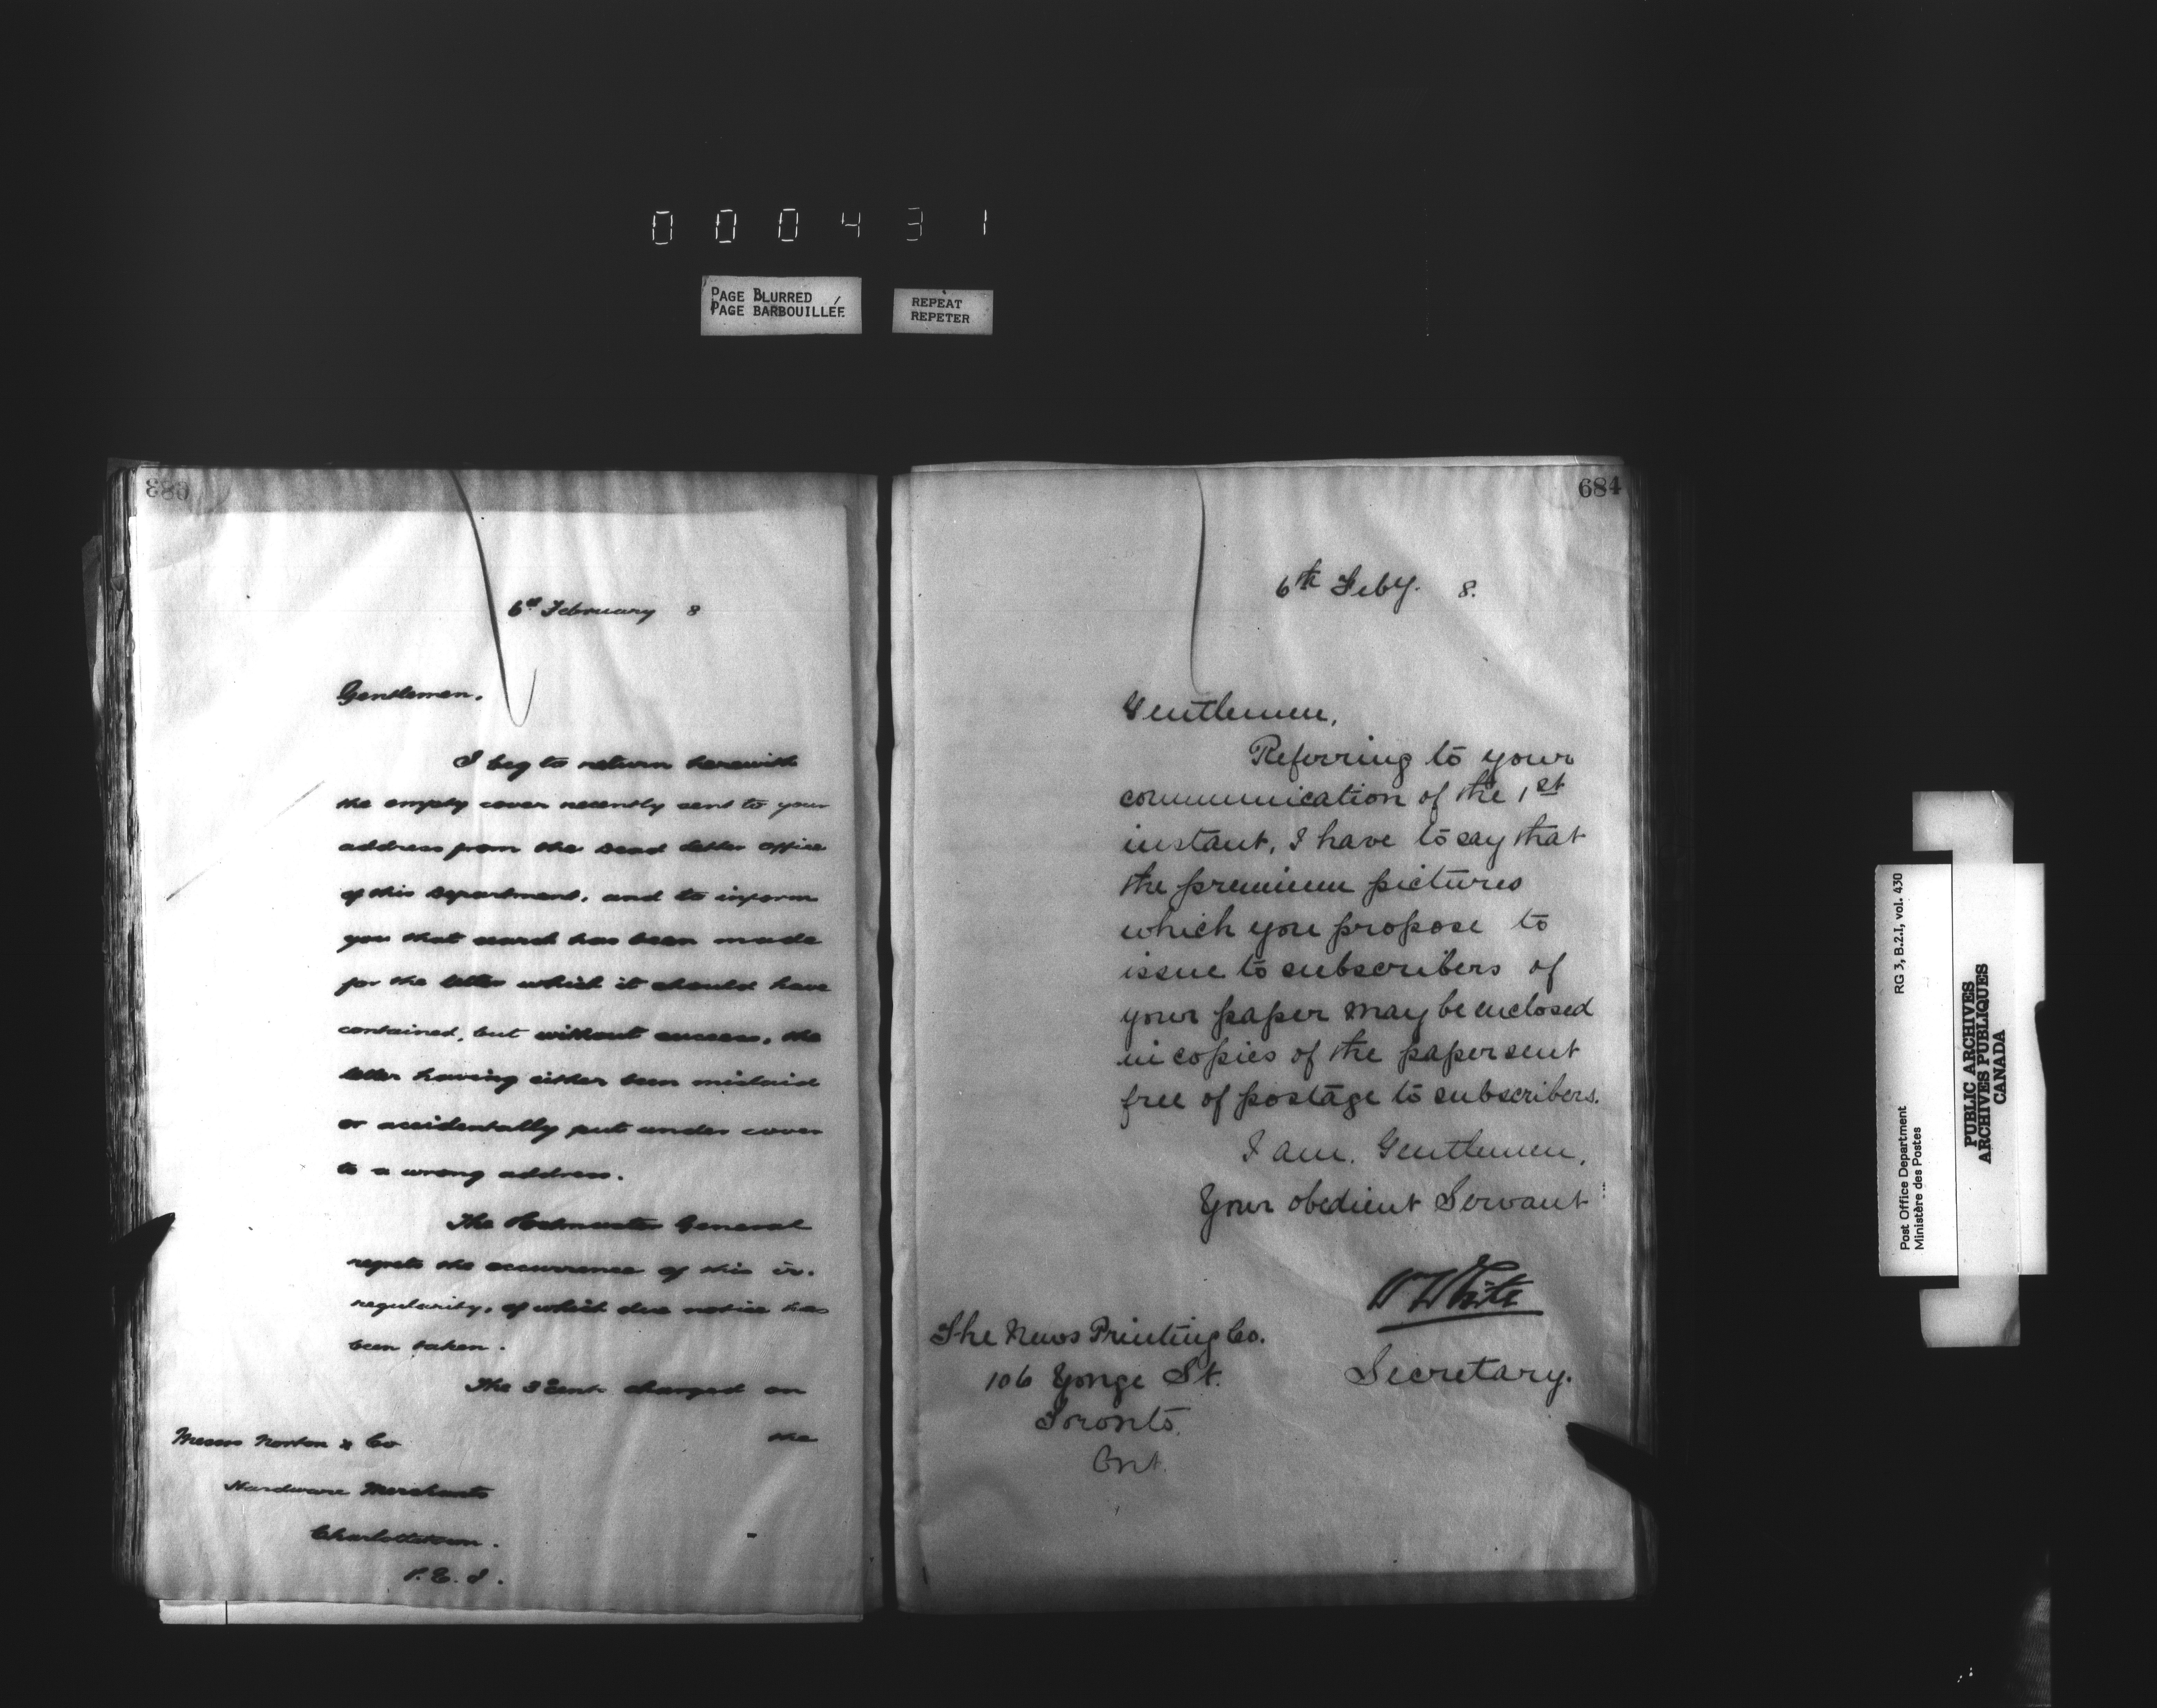 000431
PAGE BLURRED
PAGE BARBOUILLÉE
REPEAT
REPETER
683
6th February 8
Gentlemen,
I beg to return herewith
the empty cover recently sent to your
address from the Dead Letter Office
of this Department, and to inform
you that search has been made
for the letter which it should have
contained, but without success, the
letter having either been mislaid
or accidentally put under cover
to a wrong address.
The Postmaster General
regrets the occurrence of this ir-
regularity, of which due notice has
been taken.
The 3 Cents charged on
the
Messrs Norton & Co
Hardware Merchants
Charlottetown.
P.E.I.
684
6th Feby. 8.
Gentlemen,
Referring to your
communication of the 1st
instant, I have to say that
the premium pictures
which you propose to
issue to subscribers of
your paper may be enclosed
in copies of the paper sent
free of postage to subscribers.
I am, Gentlemen,
Your obedient Servant
W White
Secretary.
The News Printing Co.
106 Yonge St.
Toronto,
Ont.
Post Office Department
Ministère des Postes
RG 3, B.2.I, vol. 430
PUBLIC ARCHIVES
ARCHIVES PUBLIQUES
CANADA